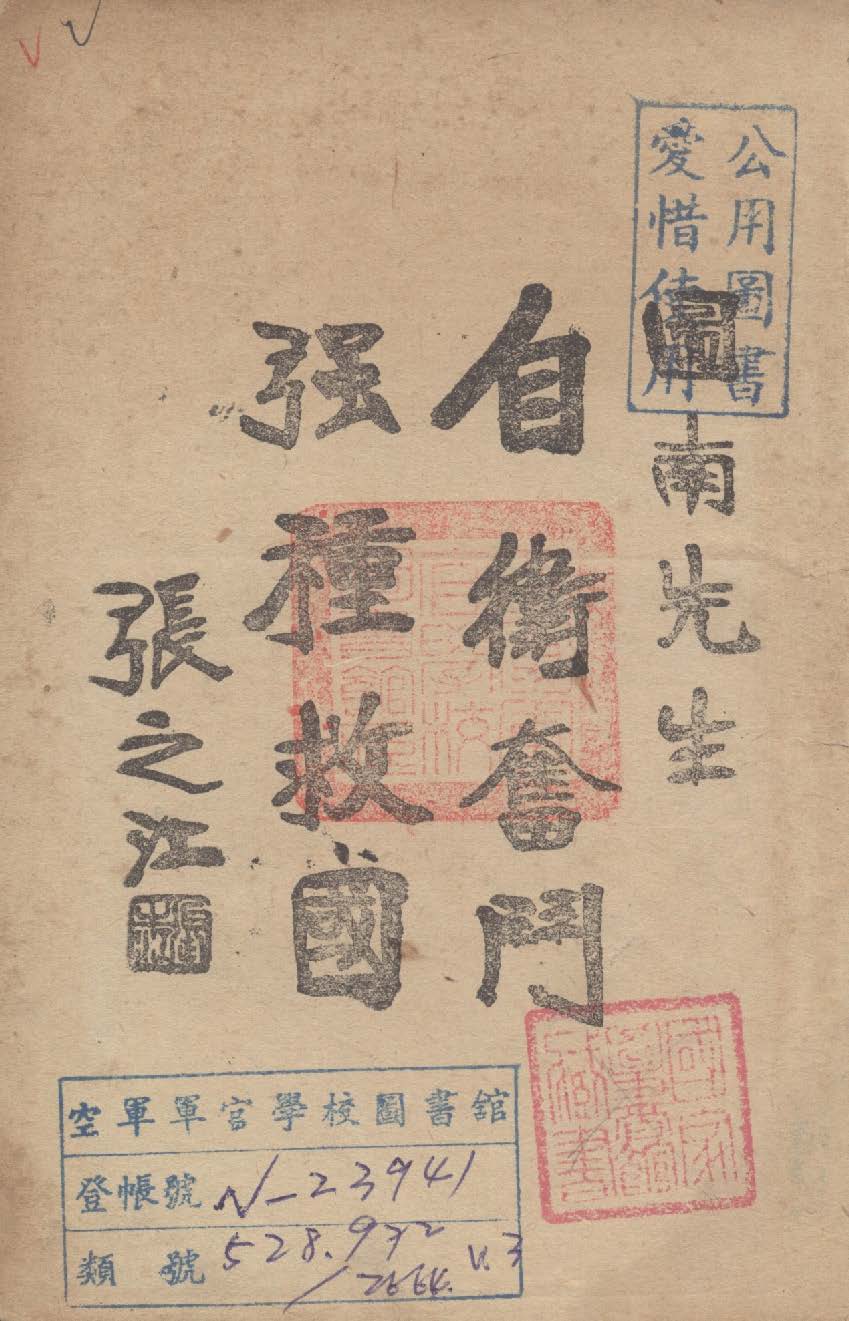 公用圖書
愛惜使用
圖南先生
自衛奮鬥
强種救國
張之江
國家圖書館藏書
空軍軍官學校圖書館
登帳號 N-23941
類號 528.972
/2664 V.3